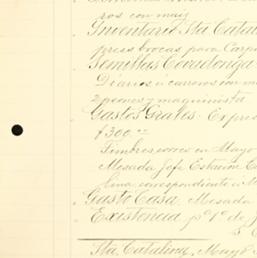 ros con maiz
Inventario Sta Catal
press brocas para Carp
Semillas Covadonga
Diarios á carreros con m
2 peones y maquinista
Gastos Grales. Expres
$300.
Timbres correo en Mayo
Mesada Jefe Estacion C
lina correspondiente a M
Gasto Casa. Mesada
Existencia pa 1o de J
Sta Catalina, Mayo